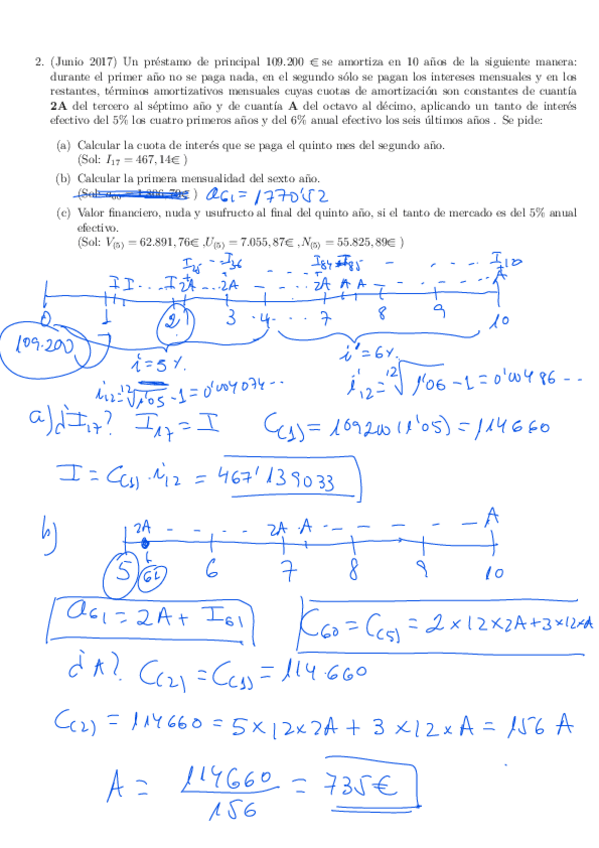 2. (Junio 2017) Un préstamo de principal 109.200 € se amortiza en 10 años de la siguiente manera:
durante el primer año no se paga nada, en el segundo sólo se pagan los intereses mensuales y en los
restantes, términos amortizativos mensuales cuyas cuotas de amortización son constantes de cuantía
2A del tercero al séptimo año y de cuantía A del octavo al décimo, aplicando un tanto de interés
efectivo del 5% los cuatro primeros años y del 6% anual efectivo los seis últimos años . Se pide:
(a) Calcular la cuota de interés que se paga el quinto mes del segundo año.
(Sol: I₁₇ = 467,14€ )
(b) Calcular la primera mensualidad del sexto año.
(Sol: ) a₆₁ = 1770'52
(c) Valor financiero, nuda y usufructo al final del quinto año, si el tanto de mercado es del 5% anual
efectivo.
(Sol: V₍₅₎ = 62.891,76€ ,U₍₅₎ = 7.055,87€ ,N₍₅₎ = 55.825,89€ )
I₂₅ - I₃₆ I₈₄ I₈₅ - - - - - I₁₂₀
I I . . . I 2A . . 2A - . . . 2A A A - - - - - - A
0 1 2 3 4 . . . 7 8 9 10
109.200 i = 5% i' = 6%
i₁₂ = ¹²√1'05 - 1 = 0'004074 ... i'₁₂ = ¹²√1'06 - 1 = 0'00486 ...
a) ¿I₁₇? I₁₇ = I C₍₁₎ = 109200 (1'05) = 114660
I = C₍₁₎ · i₁₂ = 467'139033
b) 2A - - - - 2A A - - - - - A
5 61 6 7 8 9 10
a₆₁ = 2A + I₆₁ C₆₀ = C₍₅₎ = 2×12×2A+3×12×A
¿A? C₍₂₎ = C₍₁₎ = 114.660
C₍₂₎ = 114660 = 5×12×2A + 3×12×A = 156 A
A = 114660 / 156 = 735€